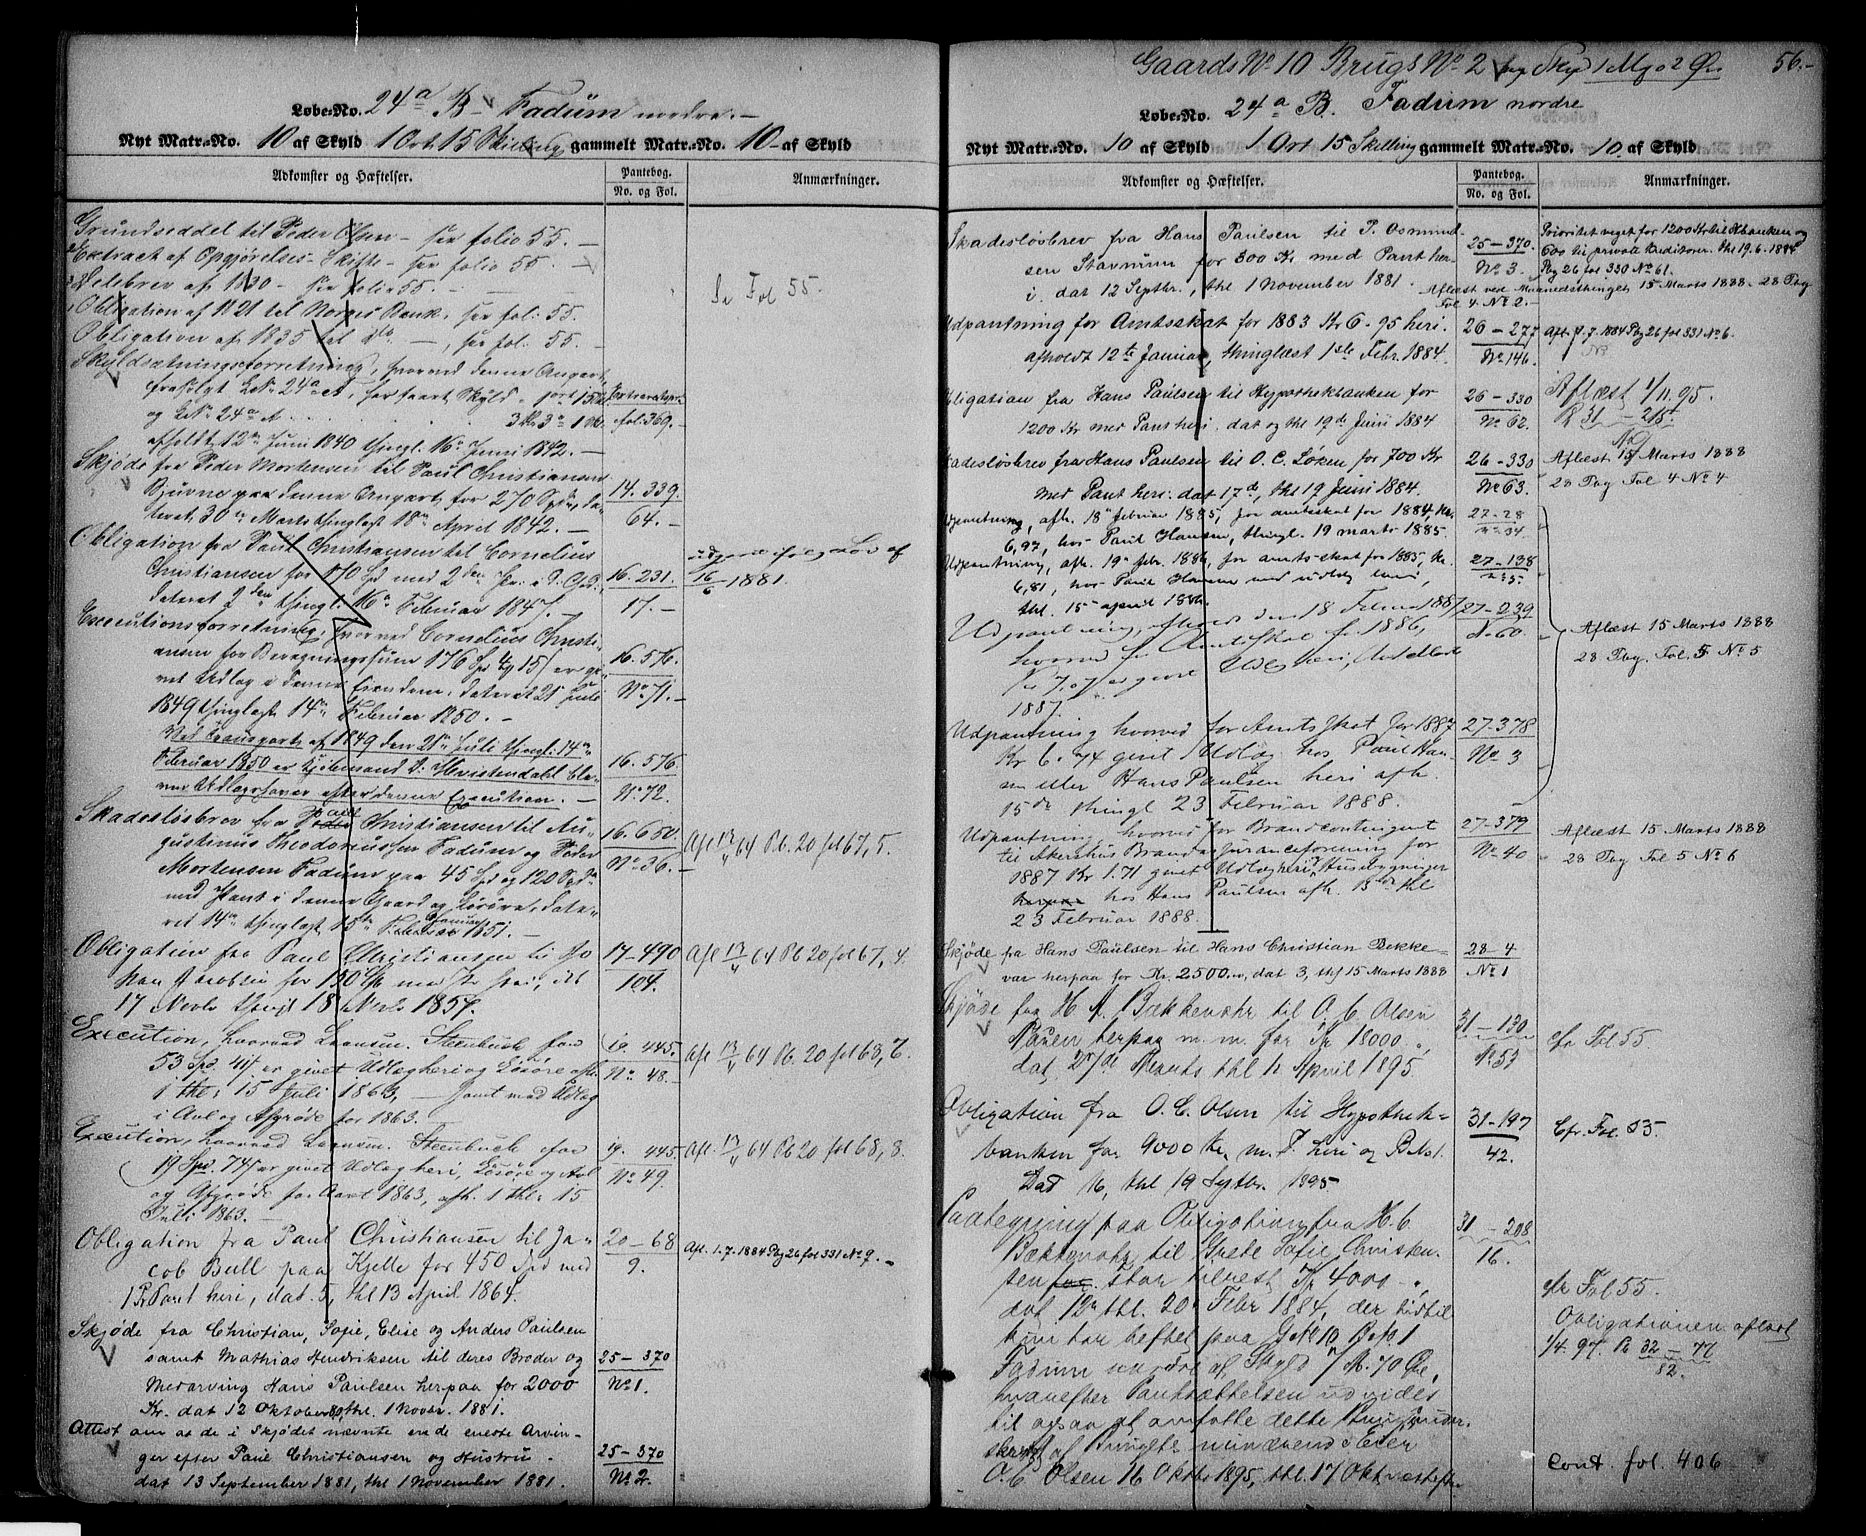 Løbe-No. 24a B Fadum nordre.
Nyt Matr.-No. 10 af Skyld 1 Ort 15 Skilling gammelt Matr.-No. 10 af Skyld
Adkomster og Hæftelser.
Pantebog.
No. og Fol.
Anmærkninger.
Grundseddel til Peder Olsen – see folio 55.
Extract af Opgjørelses-Skifte – see folio 55. –
Delebrev af 1830 – see folio 55. –
Obligation af 1821 til Norges Bank, see fol: 55.
Obligation af 1835 til do –, see fol: 55. –
Se Fol 55.
Skyldsætningsforretning, hvorved denne Anpart,
fraskilt LNo 24a A, har faaet Skyld 1 ort 15 sk.
og LNo 24a A
fol: 369.
afholdt 12te Juni 1840 thingl. 16 Juni 1842. –
Skjøde fra Peder Mortensen til Paul Christiansen
Bjuvne paa denne Anpart for 270 Spd, da-
teret 30te Marts thinglæst 18 April 1842. –
14. 339.
64. –
Obligation fra Paul Christiansen til Cornelius
Christiansen for 170 Spd med 2den Pr. i D. Gd,
dateret 2den thingl. 16 Februar 1847. –
16. 231.
17. –
16/6 1881.
Executionsforretning, hvorved Cornelius Christi-
ansen for Beregningssum 176 Spd 4 15/ er gi-
vet Udlæg i denne Eiendom, dateret 21 Juli
1849 thinglæst 14de Februar 1850. –
16. 576.
No 71. –
Ved Transport af 1849 den 21de Juli thingl. 14de
Februar 1850 er Kjøbmand D. Hvistendahl ble-
ven Udlægshaver efter denne Execution. –
16. 576
No 72.
Skadesløsbrev fra Paul Christiansen til Au-
gustinus Theodoriussen Fadum og Peder
Mortensen Fadum paa 45 Spd og 120 Spd
med Pant i denne Gaard og Løsøre, date-
ret 14de thinglæst 15de Januar 1851. –
16. 650.
No 36. –
Afl 13/4 64 Pb. 20 fol 67, 5.
Obligation fra Paul Christiansen til Jo
han Jacobsen for 150 Spd med Pr heri, dat
17 Novbr thingl 18 Novbr 1857.
17-490
104.
Afl 13/4 64 Pb 20 fol 67, 4.
Execution, hvorved Laansm. Steenbuch for
53 Spd 41/ er givet Udlæg heri og Løsøre afh.
1 thl: 15 Juli 1863, – samt med Udlæg
i Avl og Afgrøde for 1863.
19. 445.
No 48. –
Afl 13/4 64 Pb. 20 fol 68, 7.
Execution, hvorved Laansm. Steenbuch for
19 Spd. 74/ er givet Udlæg heri, Løsøre og Avl
og Afgrøde for Aaret 1863, afh. 1 thl: 15
Juli 1863. –
19. 445.
No 49.
Afl. 13/4 64 Pb 20 fol 68, 8.
Obligation fra Paul Christiansen til Ja-
cob Bull paa Kjelle for 450 Spd med
1 Pr Pant heri, dat. 5, thl 13 April 1864.
20-68
9.
Afl. 1.7.1884 Pbg 26 fol 331 No 9. –
Skjøde fra Christian, Sofie, Elise og Anders Paulsen
samt Mathias Hendriksen til deres Broder og
Medarving Hans Paulsen herpaa for 2000
Kr. dat 12 Oktober 80, thl. 1 Novbr. 1881.
25-370
No 1.
Attest om at de i Skjødet nævnte er de eneste Arvin-
ger efter Paul Christiansen og Hustru.
dat 13 September 1881, thl 1 November 1881.
25-370
No 2.
Gaards No 10 Brugs No 2 ny Skyld 1 Mk 02 Øre 56.
Løbe-No. 24a B. Fadum nordre
Nyt Matr.-No. 10 af Skyld 1 Ort 15 Skilling gammelt Matr.-No. 10. af Skyld
Adkomster og Hæftelser.
Pantebog.
No. og Fol.
Anmærkninger.
Skadesløsbrev fra Hans Paulsen til P. Osmund-
sen Stavnum for 300 Kr. med Pant her-
i. dat 12 Septbr., thl 1 November 1881.
25-370.
No 3.
Prioritet veget for 1200 Kr til Hbanken og
600 til private Kreditorer. thl 19.6.1884
Pbg 26 fol 330 No 61.
Aflæst ved Maanedsthinget 15 Marts 1888. 28 Pbg
Fol 4 No 2.
Udpantning for Amtsskat for 1883 Kr 6-95 heri.
afholdt 12te Januar, thinglæst 1ste Febr. 1884.
26-277
No 146.
Aft 1.7.1884 Pbg 26 fol 331 No 6.
Obligation fra Hans Paulsen til Hypothekbanken for
1200 Kr med Pant heri, dat og thl 19de Juni 1884
26-330
No 62.
Aflæst 1/11 95.
P 31 – 215
Skadesløsbrev fra Hans Paulsen til O. C. Løken for 700 Kr
med Pant heri. dat 17d, thl 19 Juni 1884.
26-330
No 63.
Aflæst 15 Marts 1888
28 Pbg Fol 4 No 4
Udpantning, afh. 18 februar 1885, for amtsskat for 1884 Kr.
6,97, hos Paul Hansen, thingl. 19 marts 1885.
27-28
No 34.
Udpantning, afh. 19 febr. 1886, for amtsskat for 1885, Kr.
6,81, hos Paul Hansen med udlæg heri,
thl. 15 april 1886.
27-138
No 5.
Udpantning, afholdt den 18 Februar 1887,
hvorved for Amtsskat for 1886,
Kr 7,07 er givet Udlæg heri,
1887.
27-239
No 60.
Aflæst 15 Marts 1888
28 Pbg. Fol. 5 No 5
Udpantning hvorved for Amtsskat for 1887
Kr 6.74 givet Udlæg hos Paul Han-
sen eller Hans Paulsen heri afh.
15de thingl 23 Februar 1888.
27-378
No 3
Udpantning hvorved for Brandcontingent
til Akershus Brandassuranceforening for
1887 Kr 1.71 givet Udlæg heri, Husebygninger
herpaa hos Hans Paulsen afh. 15de thl
23 Februar 1888.
27-379
No 40
Aflæst 15 Marts 1888
28 Pbg Fol 5 No 6
Skjøde fra Hans Paulsen til Hans Christian Bekke-
var herpaa for Kr. 2500, dat 3, thl 15 Marts 1888
28-4
No 1
Skjøde fra H. C. Bækkevahr til O. C. Olsen
Nauen herpaa m. m. for Kr 18000.
dat 27de Marts thl 1 April 1895.
31-130
No 53
cfr Fol 55.
Obligation fra O. C. Olsen til Hypothek-
banken for 9000 Kr. m. P. heri og B No 1.
Dat 16, thl 19 Septbr. 1895
31-197
42.
Cfr. Fol. 55.
Paategning paa Obligation fra H. C.
Bækkevahr til Grete Sofie Christen-
sen for stor tilrest Kr 4000,
dat 12te thl. 20 Febr 1884, der hidtil
kun har heftet paa G No 10 B No 1
Fadum nordre af Skyld Mk. 70 Øre,
hvorefter Pantsættelsen udvides
til ogsaa at omfatte dette Brug under-
skrevet af Brugets nuværende Eier
O. C. Olsen 16 Oktbr 1895, thl. 17 Oktbr næstefter
31-208
16.
cfr Fol 55.
Obligationen aflæst
1/4 97. Pb 32 – 77
82.
Cont. fol. 406